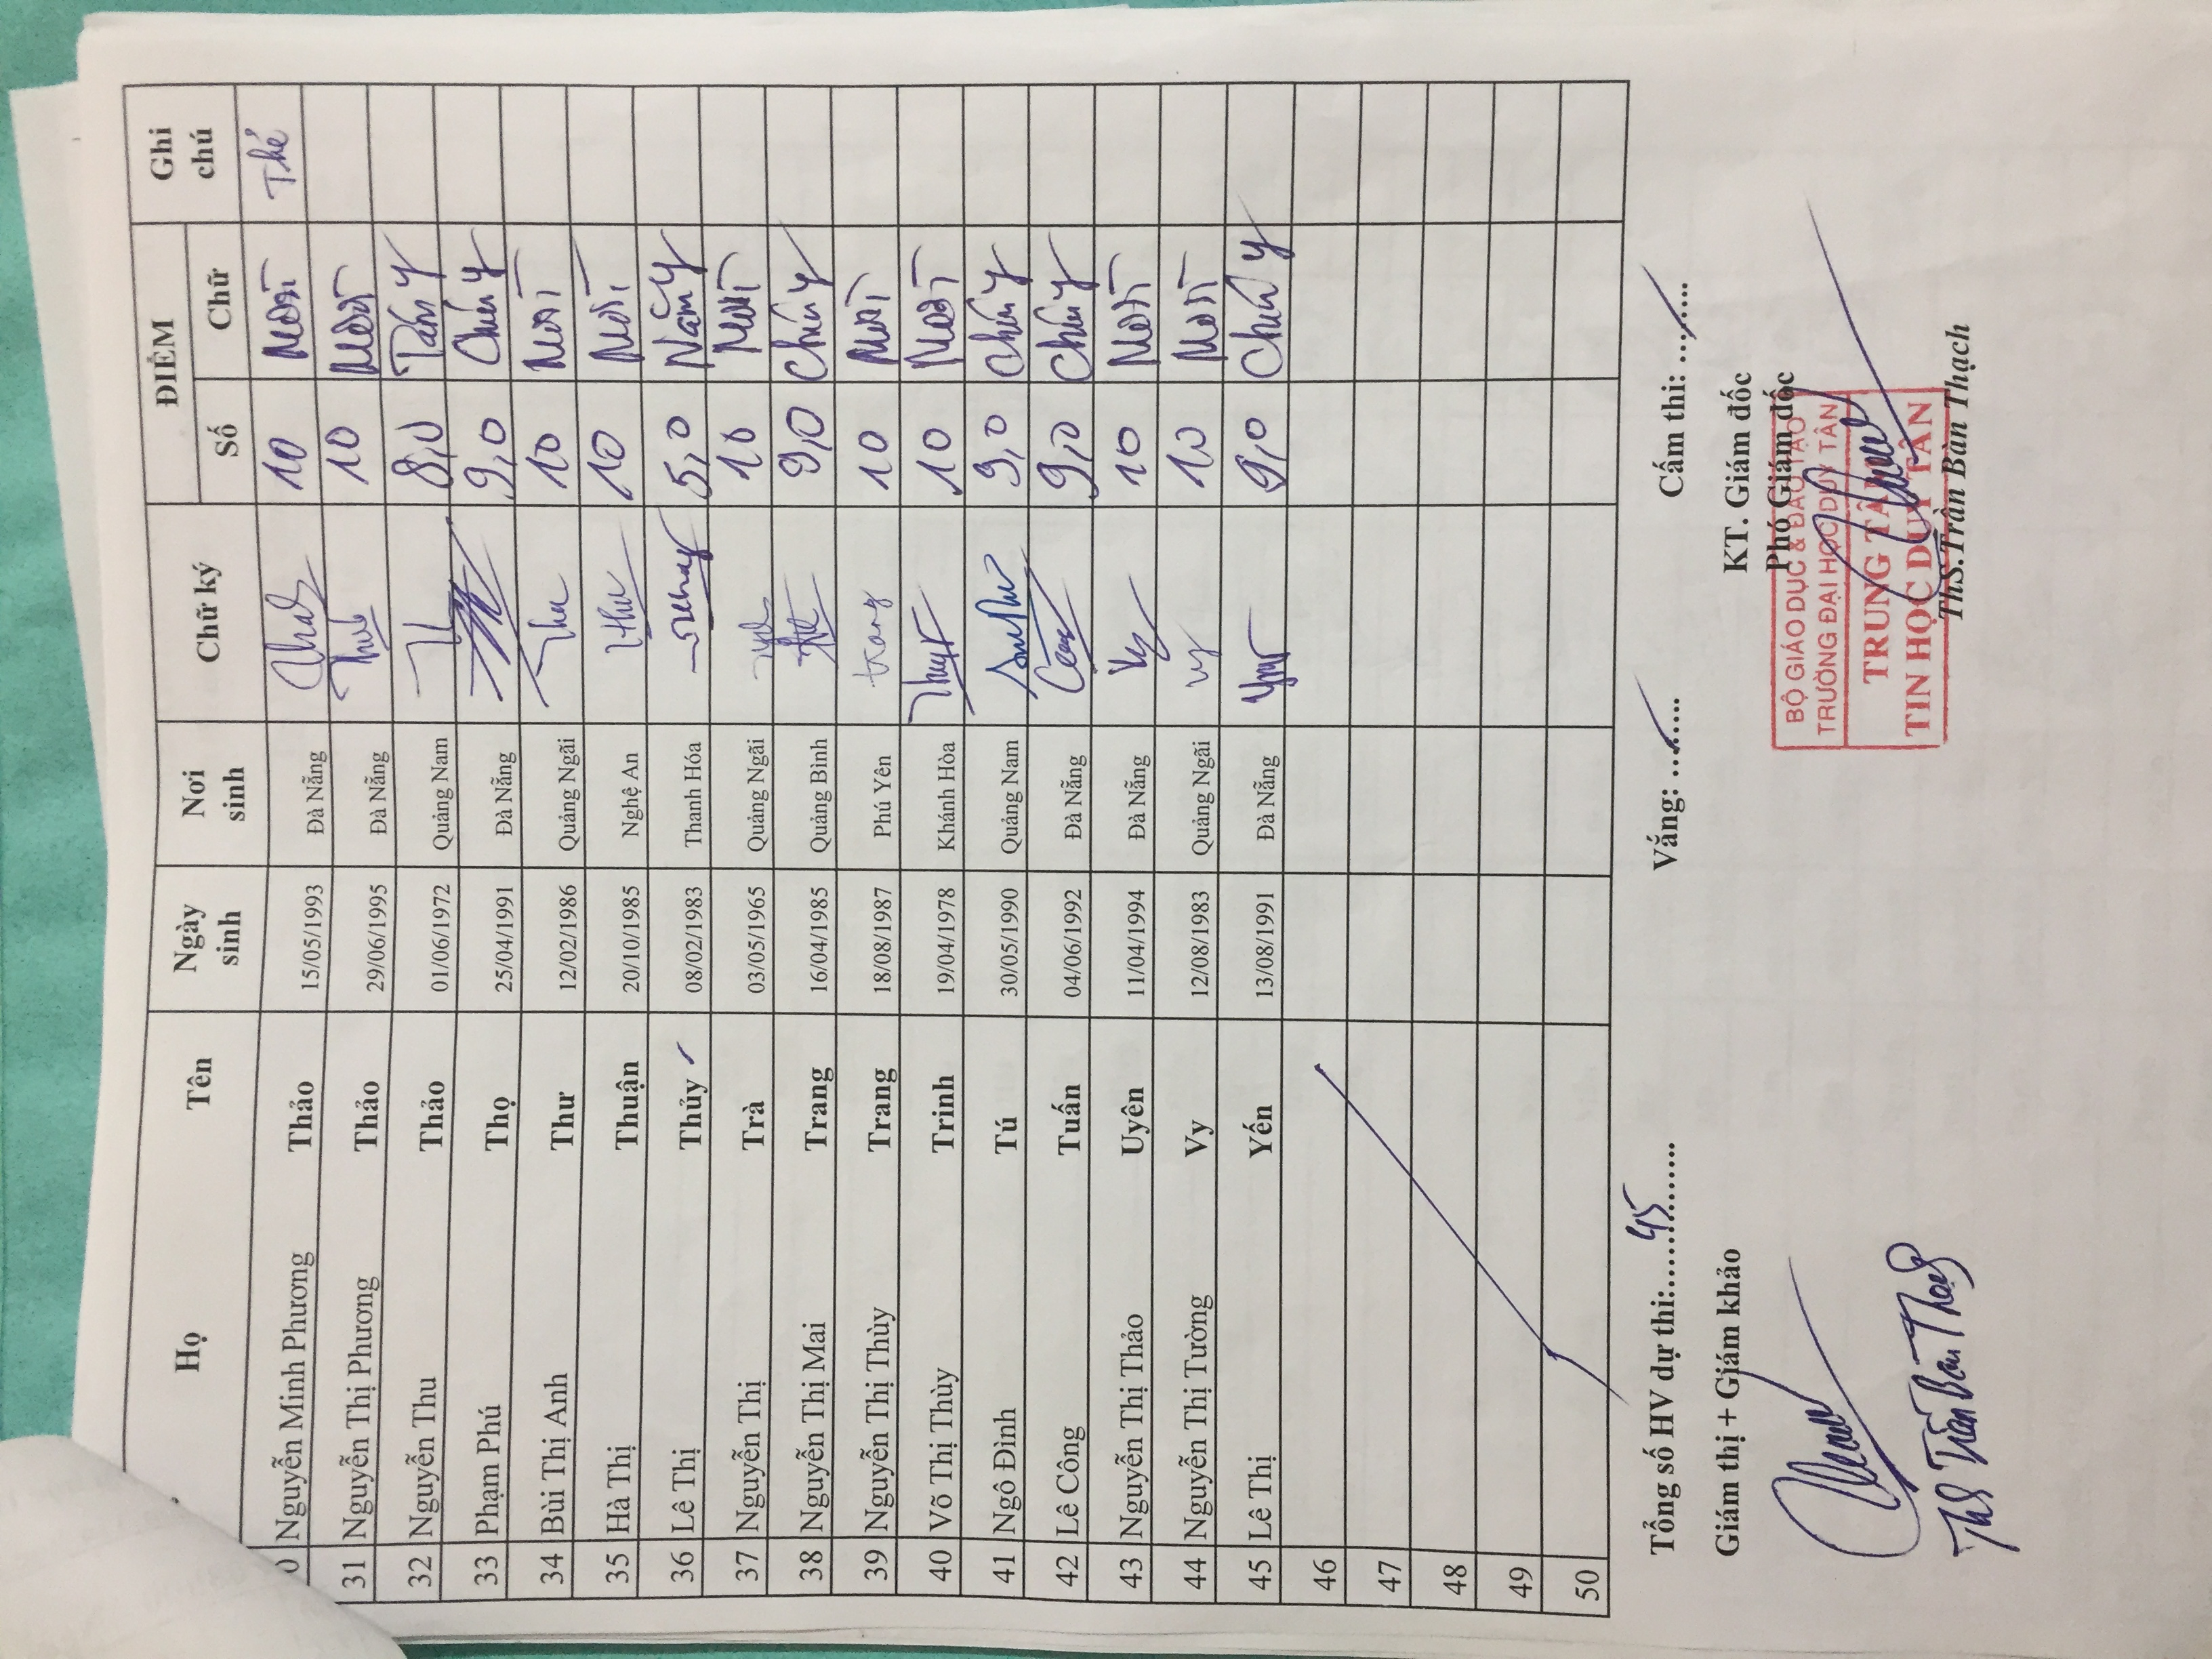 Họ Tên Ngày sinh Nơi sinh Chữ ký ĐIỂM Ghi chú
Số Chữ
0 Nguyễn Minh Phương Thảo 15/05/1993 Đà Nẵng 10 Mười Thẻ
31 Nguyễn Thị Phương Thảo 29/06/1995 Đà Nẵng 10 Mười
32 Nguyễn Thu Thảo 01/06/1972 Quảng Nam 8,0 Tám y
33 Phạm Phú Thọ 25/04/1991 Đà Nẵng 9,0 Chín y
34 Bùi Thị Anh Thư 12/02/1986 Quảng Ngãi Thu 10 Mười
35 Hà Thị Thuận 20/10/1985 Nghệ An 10 Mười
36 Lê Thị Thủy 08/02/1983 Thanh Hóa 5,0 Năm y
37 Nguyễn Thị Trà 03/05/1965 Quảng Ngãi 10 Mười
38 Nguyễn Thị Mai Trang 16/04/1985 Quảng Bình 9,0 Chín y
39 Nguyễn Thị Thùy Trang 18/08/1987 Phú Yên trang 10 Mười
40 Võ Thị Thùy Trinh 19/04/1978 Khánh Hòa 10 Mười
41 Ngô Đình Tú 30/05/1990 Quảng Nam 9,0 Chín y
42 Lê Công Tuấn 04/06/1992 Đà Nẵng 9,0 Chín y
43 Nguyễn Thị Thảo Uyên 11/04/1994 Đà Nẵng 10 Mười
44 Nguyễn Thị Tường Vy 12/08/1983 Quảng Ngãi vy 10 Mười
45 Lê Thị Yến 13/08/1991 Đà Nẵng 9,0 Chín y
46
47
48
49
50
Tổng số HV dự thi:.....45....... Vắng: ........ Cấm thi: ........
Giám thị + Giám khảo KT. Giám đốc
Phó Giám đốc
BỘ GIÁO DỤC & ĐÀO TẠO
TRƯỜNG ĐẠI HỌC DUY TÂN
TRUNG TÂM
TIN HỌC DUY TÂN
ThS Trần Bàn Thạch ThS.Trần Bàn Thạch